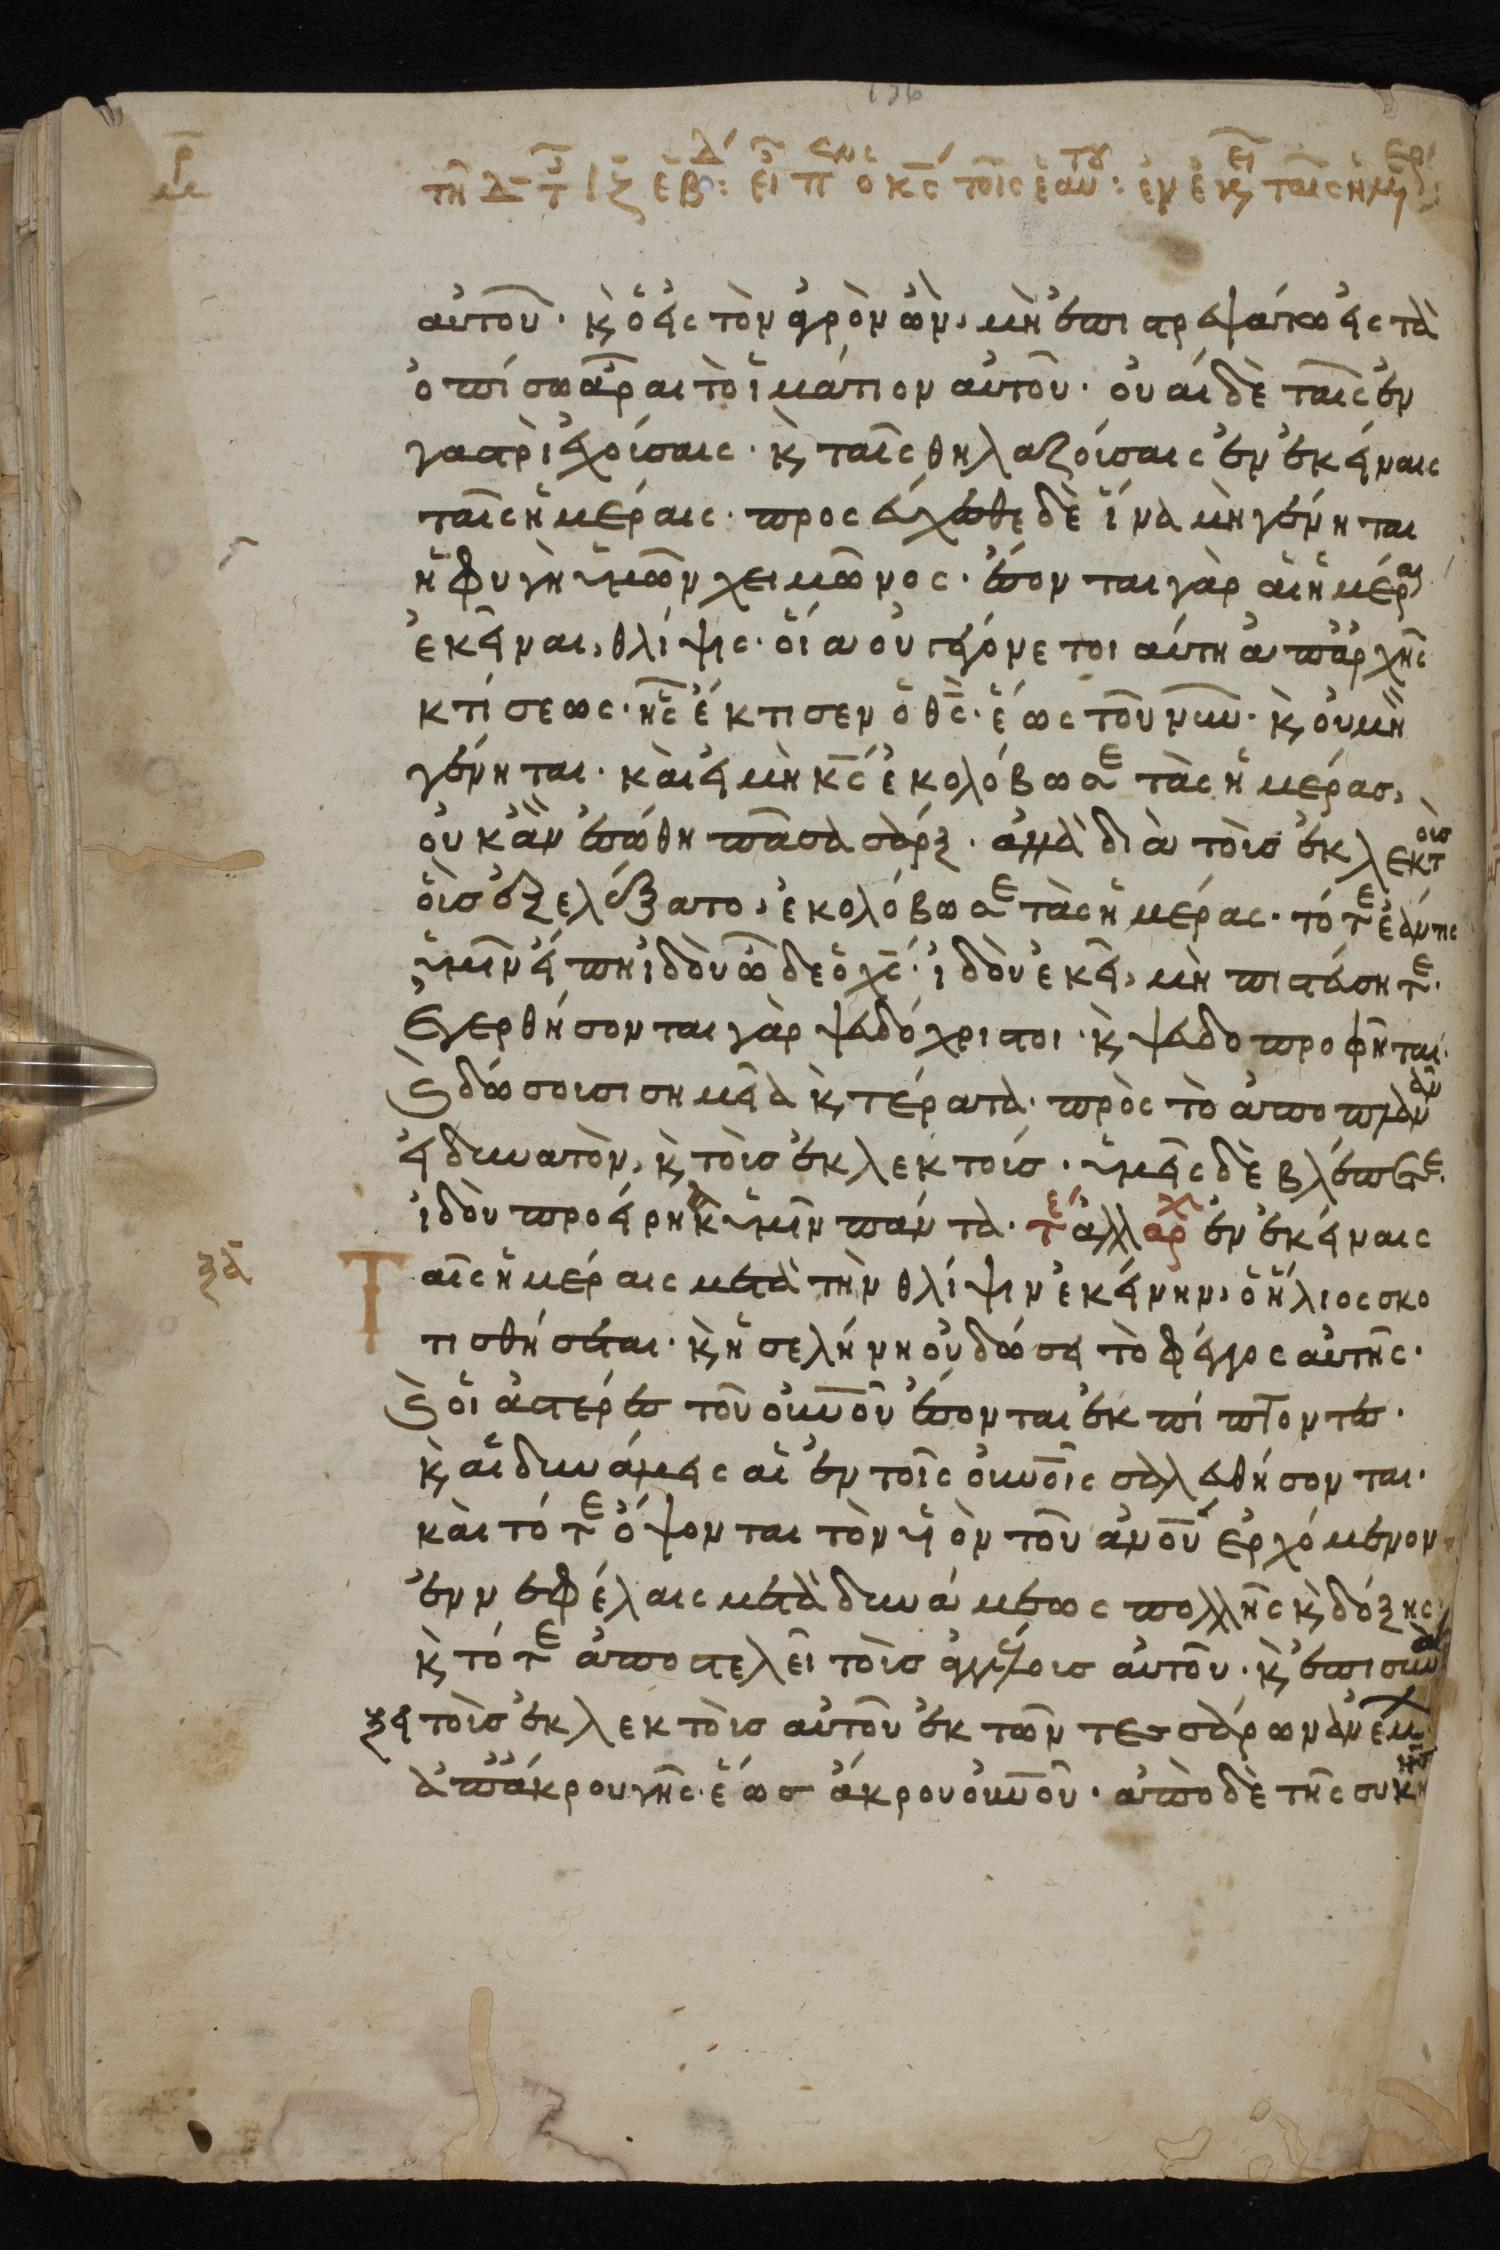 τῆ Δ τ ιζ ἑβ: εἶπ ὁ κς τοῖς ἑαυτου: ἐν ἐκει ταῖς ἡμερ
αὐτοῦ· κ, ὁ εἰς τὸν ἀγρὸν ὢν, μὴ ἐπιστρεψάτω εἰς τὰ
ὀπίσω ἆραι τὸ ἱμάτιον αὐτοῦ· οὐαὶ δὲ ταῖς ἐν
γαστρὶ ἐχούσαις· κ, ταῖς θηλαζούσαις ἐν ἐκείναις
ταῖς ἡμέραις· προσεύχεσθε δὲ ἵνα μὴ γένηται
ἡ φυγὴ ὑμῶν χειμῶνος· ἔσονται γὰρ αἱ ἡμέραι
ἐκεῖναι, θλίψις· οἵα οὐ γέγονε τοιαύτη ἀπαρχῆς
κτίσεως· ἧς ἔκτισεν ὁ θς· ἕως τοῦ νῦν· κ, οὐ μὴ
γένηται· καὶ εἰ μὴ κς ἐκολόβωσε τὰς ἡμέρας,
οὐκ ἂν ἐσώθη πᾶσα σάρξ· ἀλλὰ διὰ τοὺς ἐκλεκτοὺς
οὓς ἐξελέξατο, ἐκολόβωσε τὰς ἡμέρας· τότε ἐάν τις
ὑμῖν εἴπη ἰδοὺ ὧδε ὁ χς· ἰδοὺ ἐκεῖ, μὴ πιστεύσητε·
ἐγερθήσονται γὰρ ψευδόχριστοι· κ, ψευδοπροφῆται·
κ, δώσουσι σημεῖα κ, τέρατα· πρὸς τὸ ἀποπλανᾶν
εἰ δυνατὸν, κ, τοὺς ἐκλεκτούς· ὑμεῖς δὲ βλέπετε·
ἰδοὺ προείρηκα ὑμῖν πάντα· τε ἀλλ αρχ ἐν ἐκείναις
Ταῖς ἡμέραις μετὰ τὴν θλίψιν ἐκείνην, ὁ ἥλιος σκο
τισθήσεται· κ, ἡ σελήνη οὐ δώσει τὸ φέγγος αὐτῆς·
κ, οἱ ἀστέρες τοῦ οὐνοῦ ἔσονται ἐκπίπτοντες·
κ, αἱ δυνάμεις αἱ ἐν τοῖς οὐνοῖς σαλευθήσονται·
καὶ τότε ὄψονται τὸν υἱὸν τοῦ ἀνοῦ ἐρχόμενον
ἐν νεφέλαις μετὰ δυνάμεως πολλῆς κ, δόξης·
κ, τότε ἀποστελεῖ τοὺς ἀγγέλους αὐτοῦ· κ, ἐπισυνά
ξει τοὺς ἐκλεκτοὺς αὐτοῦ ἐκ τῶν τεσσάρων ἀνέμ
ἀπ' ἄκρου γῆς· ἕως ἄκρου οὐνοῦ· ἀπὸ δὲ τῆς συκῆς
ξα